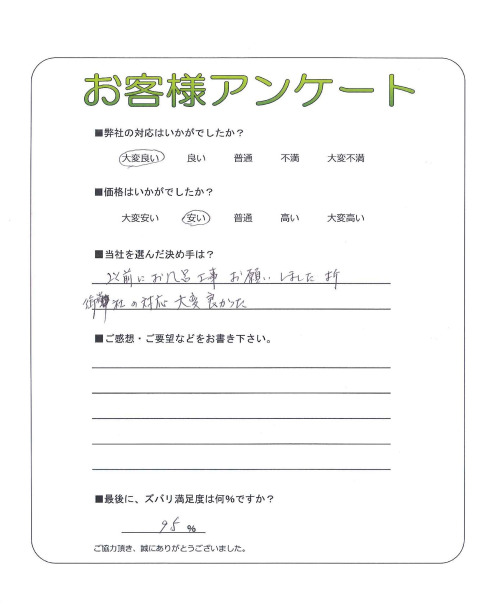 お客様アンケート
■弊社の対応はいかがでしたか?
大変良い 良い 普通 不満 大変不満
■価格はいかがでしたか?
大変安い 安い 普通 高い 大変高い
■当社を選んだ決め手は?
以前にお風呂工事 お願いしました 折
社の対応 大変良かった
■ご感想・ご要望などをお書き下さい。
■最後に、ズバリ満足度は何%ですか?
95 %
ご協力頂き、誠にありがとうございました。